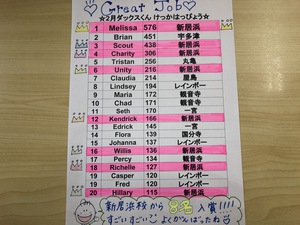 Great Job
★2月ダックスくん けっかはっぴょう★
1 Melissa 576 新居浜
2 Brian 451 宇多津
3 Scout 438 新居浜
4 Charity 306 新居浜
5 Tristan 256 丸亀
6 Unity 216 新居浜
7 Claudia 214 屋島
8 Lindsey 194 レインボー
9 Maria 172 観音寺
10 Chad 171 観音寺
11 Seth 170 一宮
12 Kendrick 166 新居浜
13 Edrick 145 一宮
14 Flora 139 国分寺
15 Johanna 137 レインボー
16 Willis 136 新居浜
17 Percy 134 観音寺
18 Richelle 127 新居浜
19 Casper 120 レインボー
19 Fred 120 レインボー
20 Hillary 115 新居浜
新居浜校から8名入賞!!!!
すごいすごい よくがんばったね